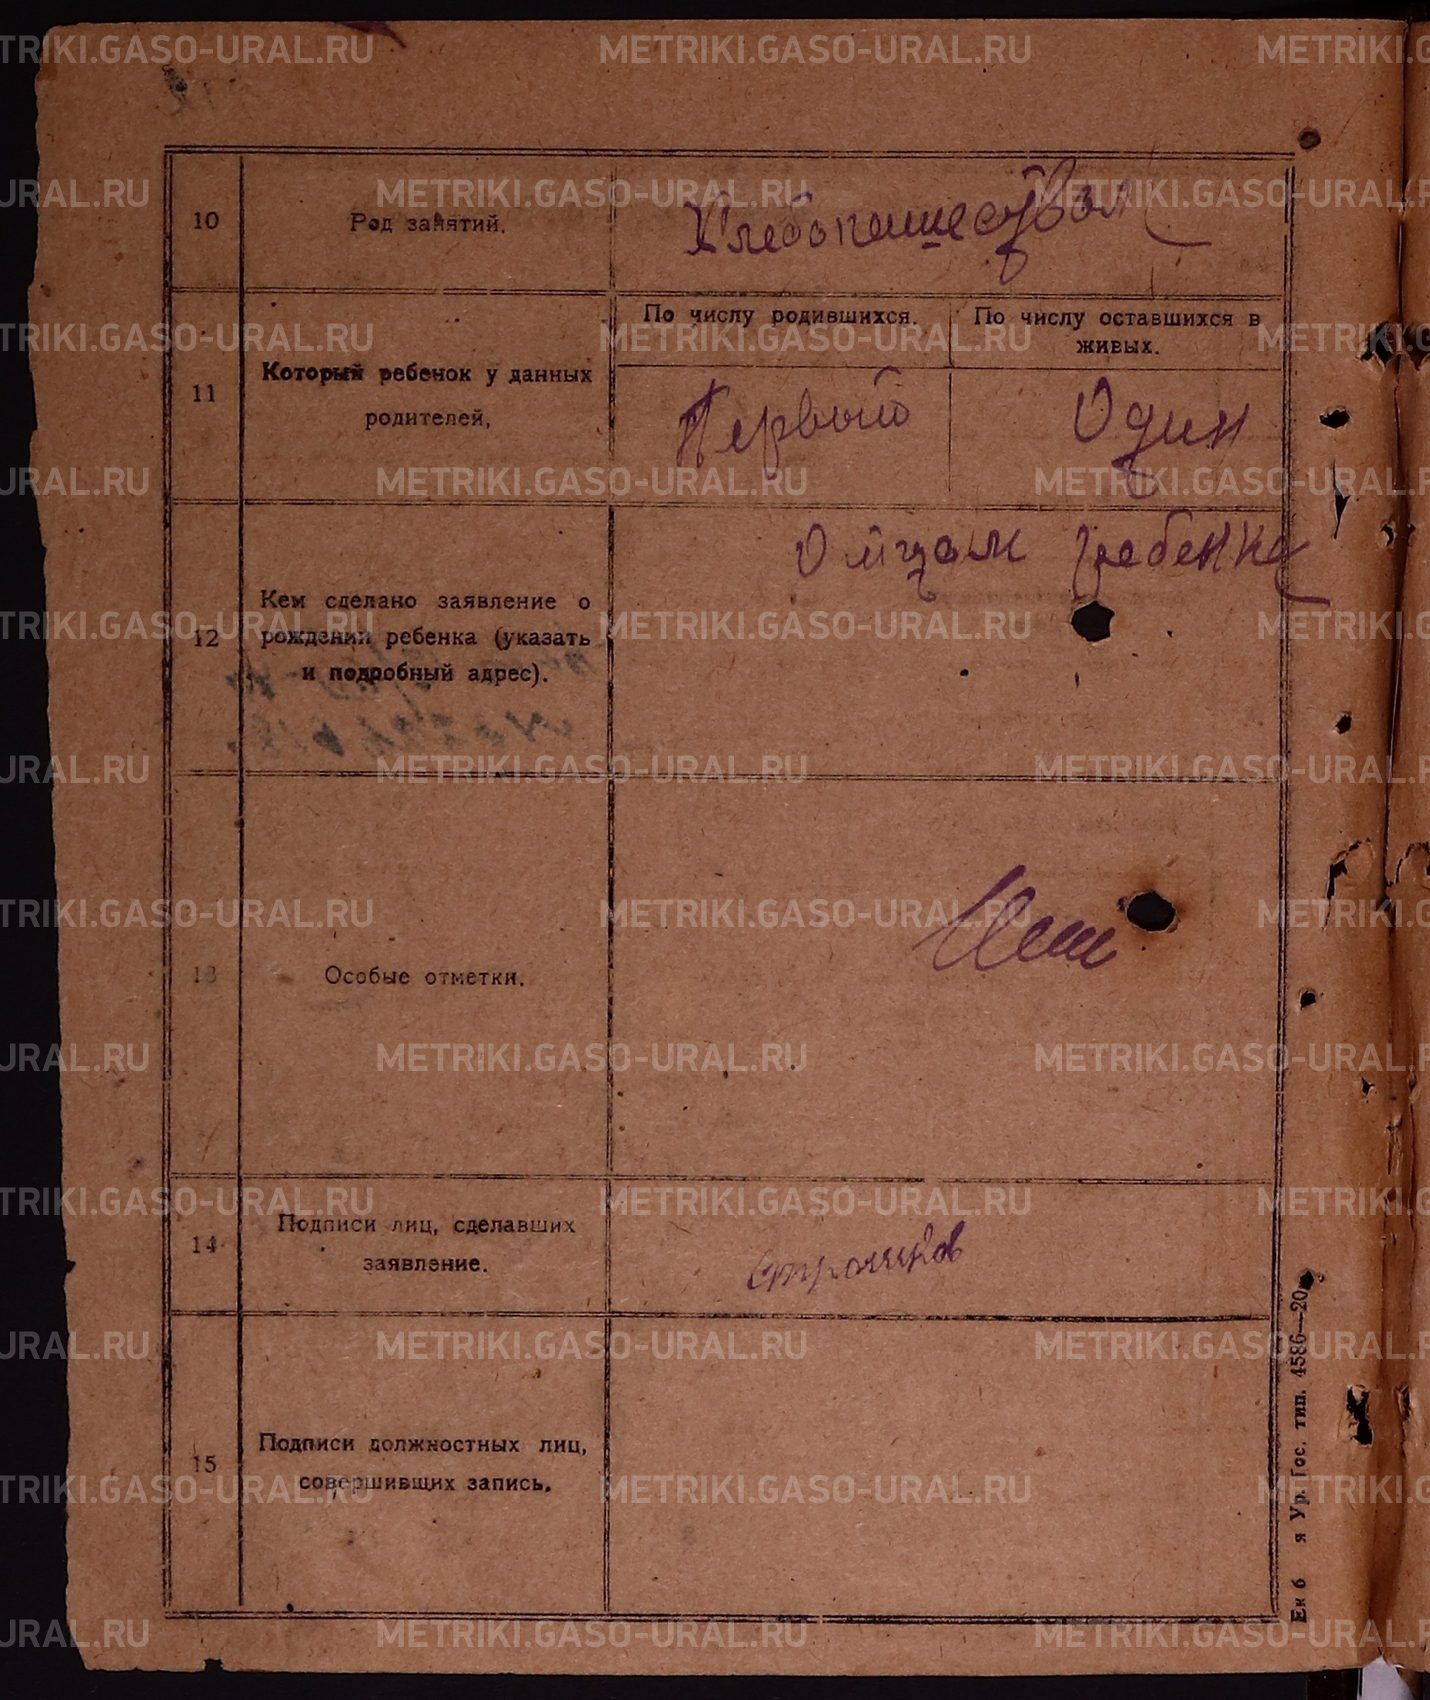 10
Род занятий.
Хлебопашество
11
Который ребенок у данных
родителей,
По числу родившихся.
По числу оставшихся в
живых.
Первый
Один
12
Кем сделано заявление о
рождении ребенка (указать
и подробный адрес).
Отцом ребенка
13
Особые отметки.
Нет
14
Подписи лиц, сделавших
заявление.
15
Подписи должностных лиц,
совершивщих запись.
я Ур. Гос. тип. 4586—20
METRIKI.GASO-URAL.RU